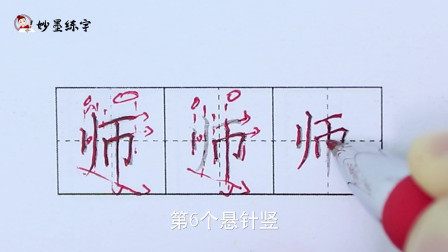 妙墨练字
师 师 师
第6个悬针竖